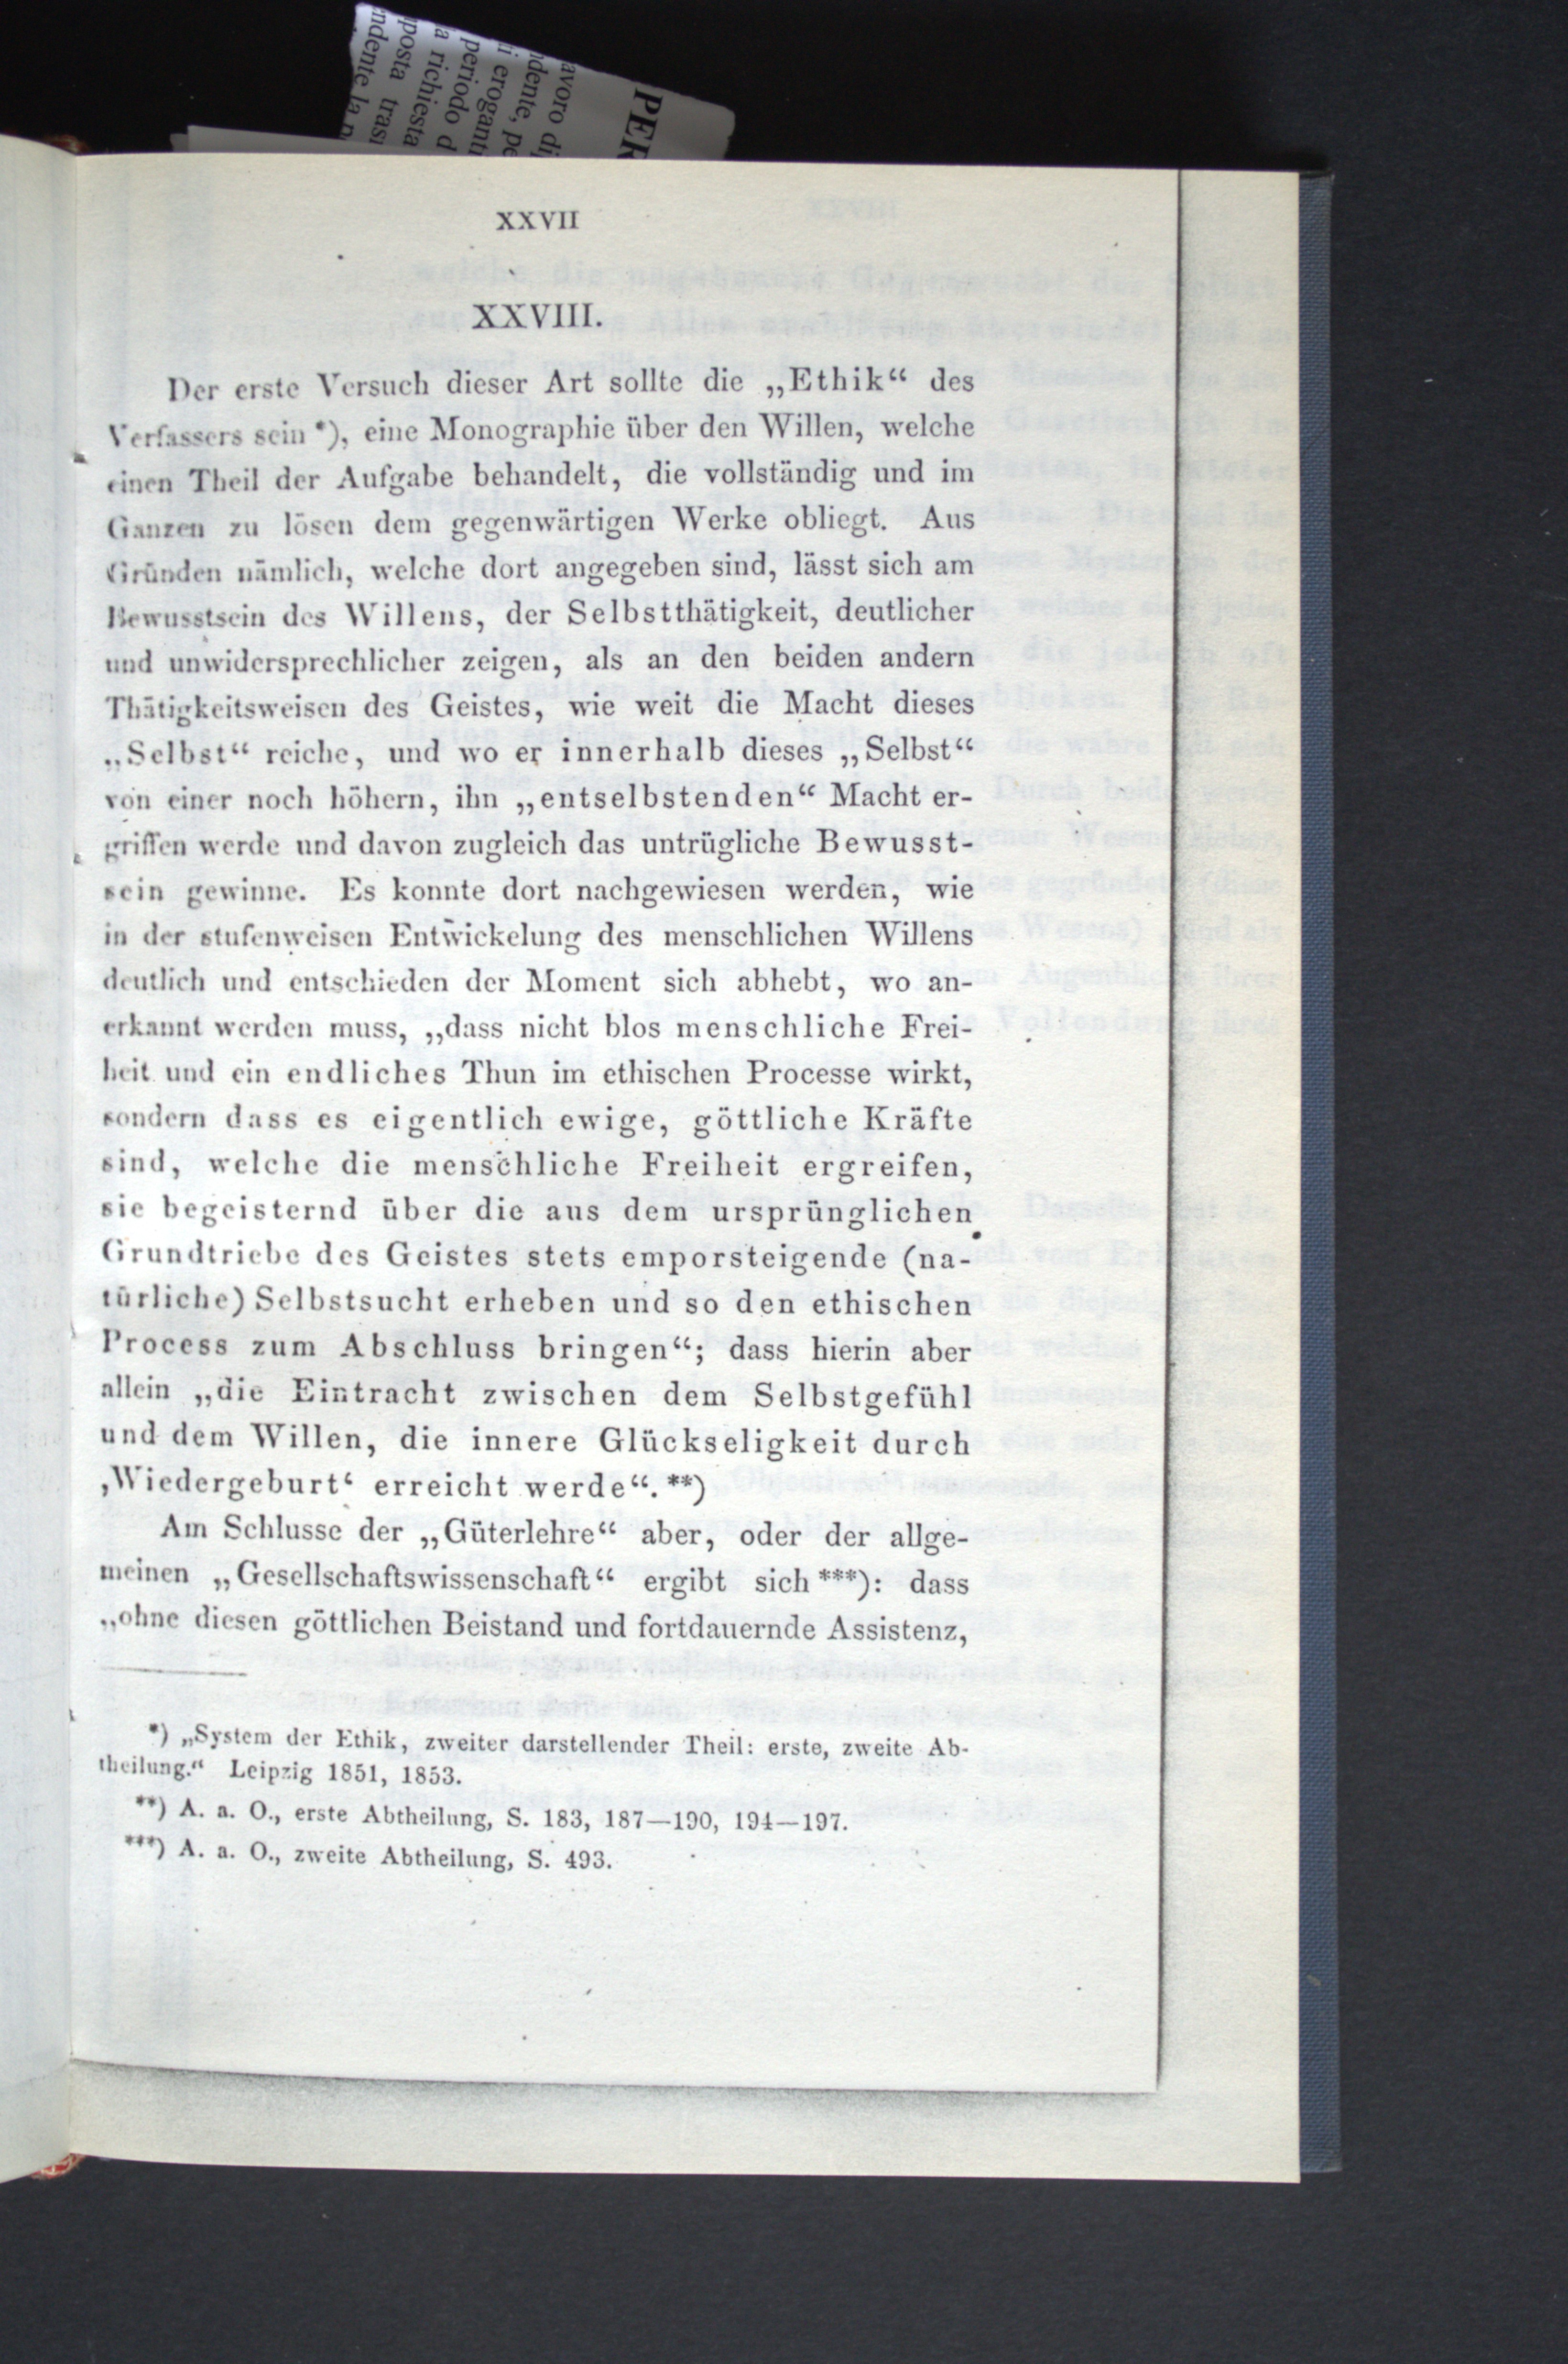 PER
avoro di
dente, pe
i eroganti
periodo d
a richiesta
posta tras
ndente la p
XXVII
XXVIII.
Der erste Versuch dieser Art sollte die „Ethik“ des
Verfassers sein *), eine Monographie über den Willen, welche
einen Theil der Aufgabe behandelt, die vollständig und im
Ganzen zu lösen dem gegenwärtigen Werke obliegt. Aus
Gründen nämlich, welche dort angegeben sind, lässt sich am
Bewusstsein des Willens, der Selbstthätigkeit, deutlicher
und unwidersprechlicher zeigen, als an den beiden andern
Thätigkeitsweisen des Geistes, wie weit die Macht dieses
„Selbst“ reiche, und wo er innerhalb dieses „Selbst“
von einer noch höhern, ihn „entselbstenden“ Macht er-
griffen werde und davon zugleich das untrügliche Bewusst-
sein gewinne. Es konnte dort nachgewiesen werden, wie
in der stufenweisen Entwickelung des menschlichen Willens
deutlich und entschieden der Moment sich abhebt, wo an-
erkannt werden muss, „dass nicht blos menschliche Frei-
heit und ein endliches Thun im ethischen Processe wirkt,
sondern dass es eigentlich ewige, göttliche Kräfte
sind, welche die menschliche Freiheit ergreifen,
sie begeisternd über die aus dem ursprünglichen
Grundtriebe des Geistes stets emporsteigende (na-
türliche) Selbstsucht erheben und so den ethischen
Process zum Abschluss bringen“; dass hierin aber
allein „die Eintracht zwischen dem Selbstgefühl
und dem Willen, die innere Glückseligkeit durch
‚Wiedergeburt‘ erreicht werde“. **)
Am Schlusse der „Güterlehre“ aber, oder der allge-
meinen „Gesellschaftswissenschaft“ ergibt sich ***): dass
„ohne diesen göttlichen Beistand und fortdauernde Assistenz,
*) „System der Ethik, zweiter darstellender Theil: erste, zweite Ab-
theilung.“ Leipzig 1851, 1853.
**) A. a. O., erste Abtheilung, S. 183, 187—190, 194—197.
***) A. a. O., zweite Abtheilung, S. 493.